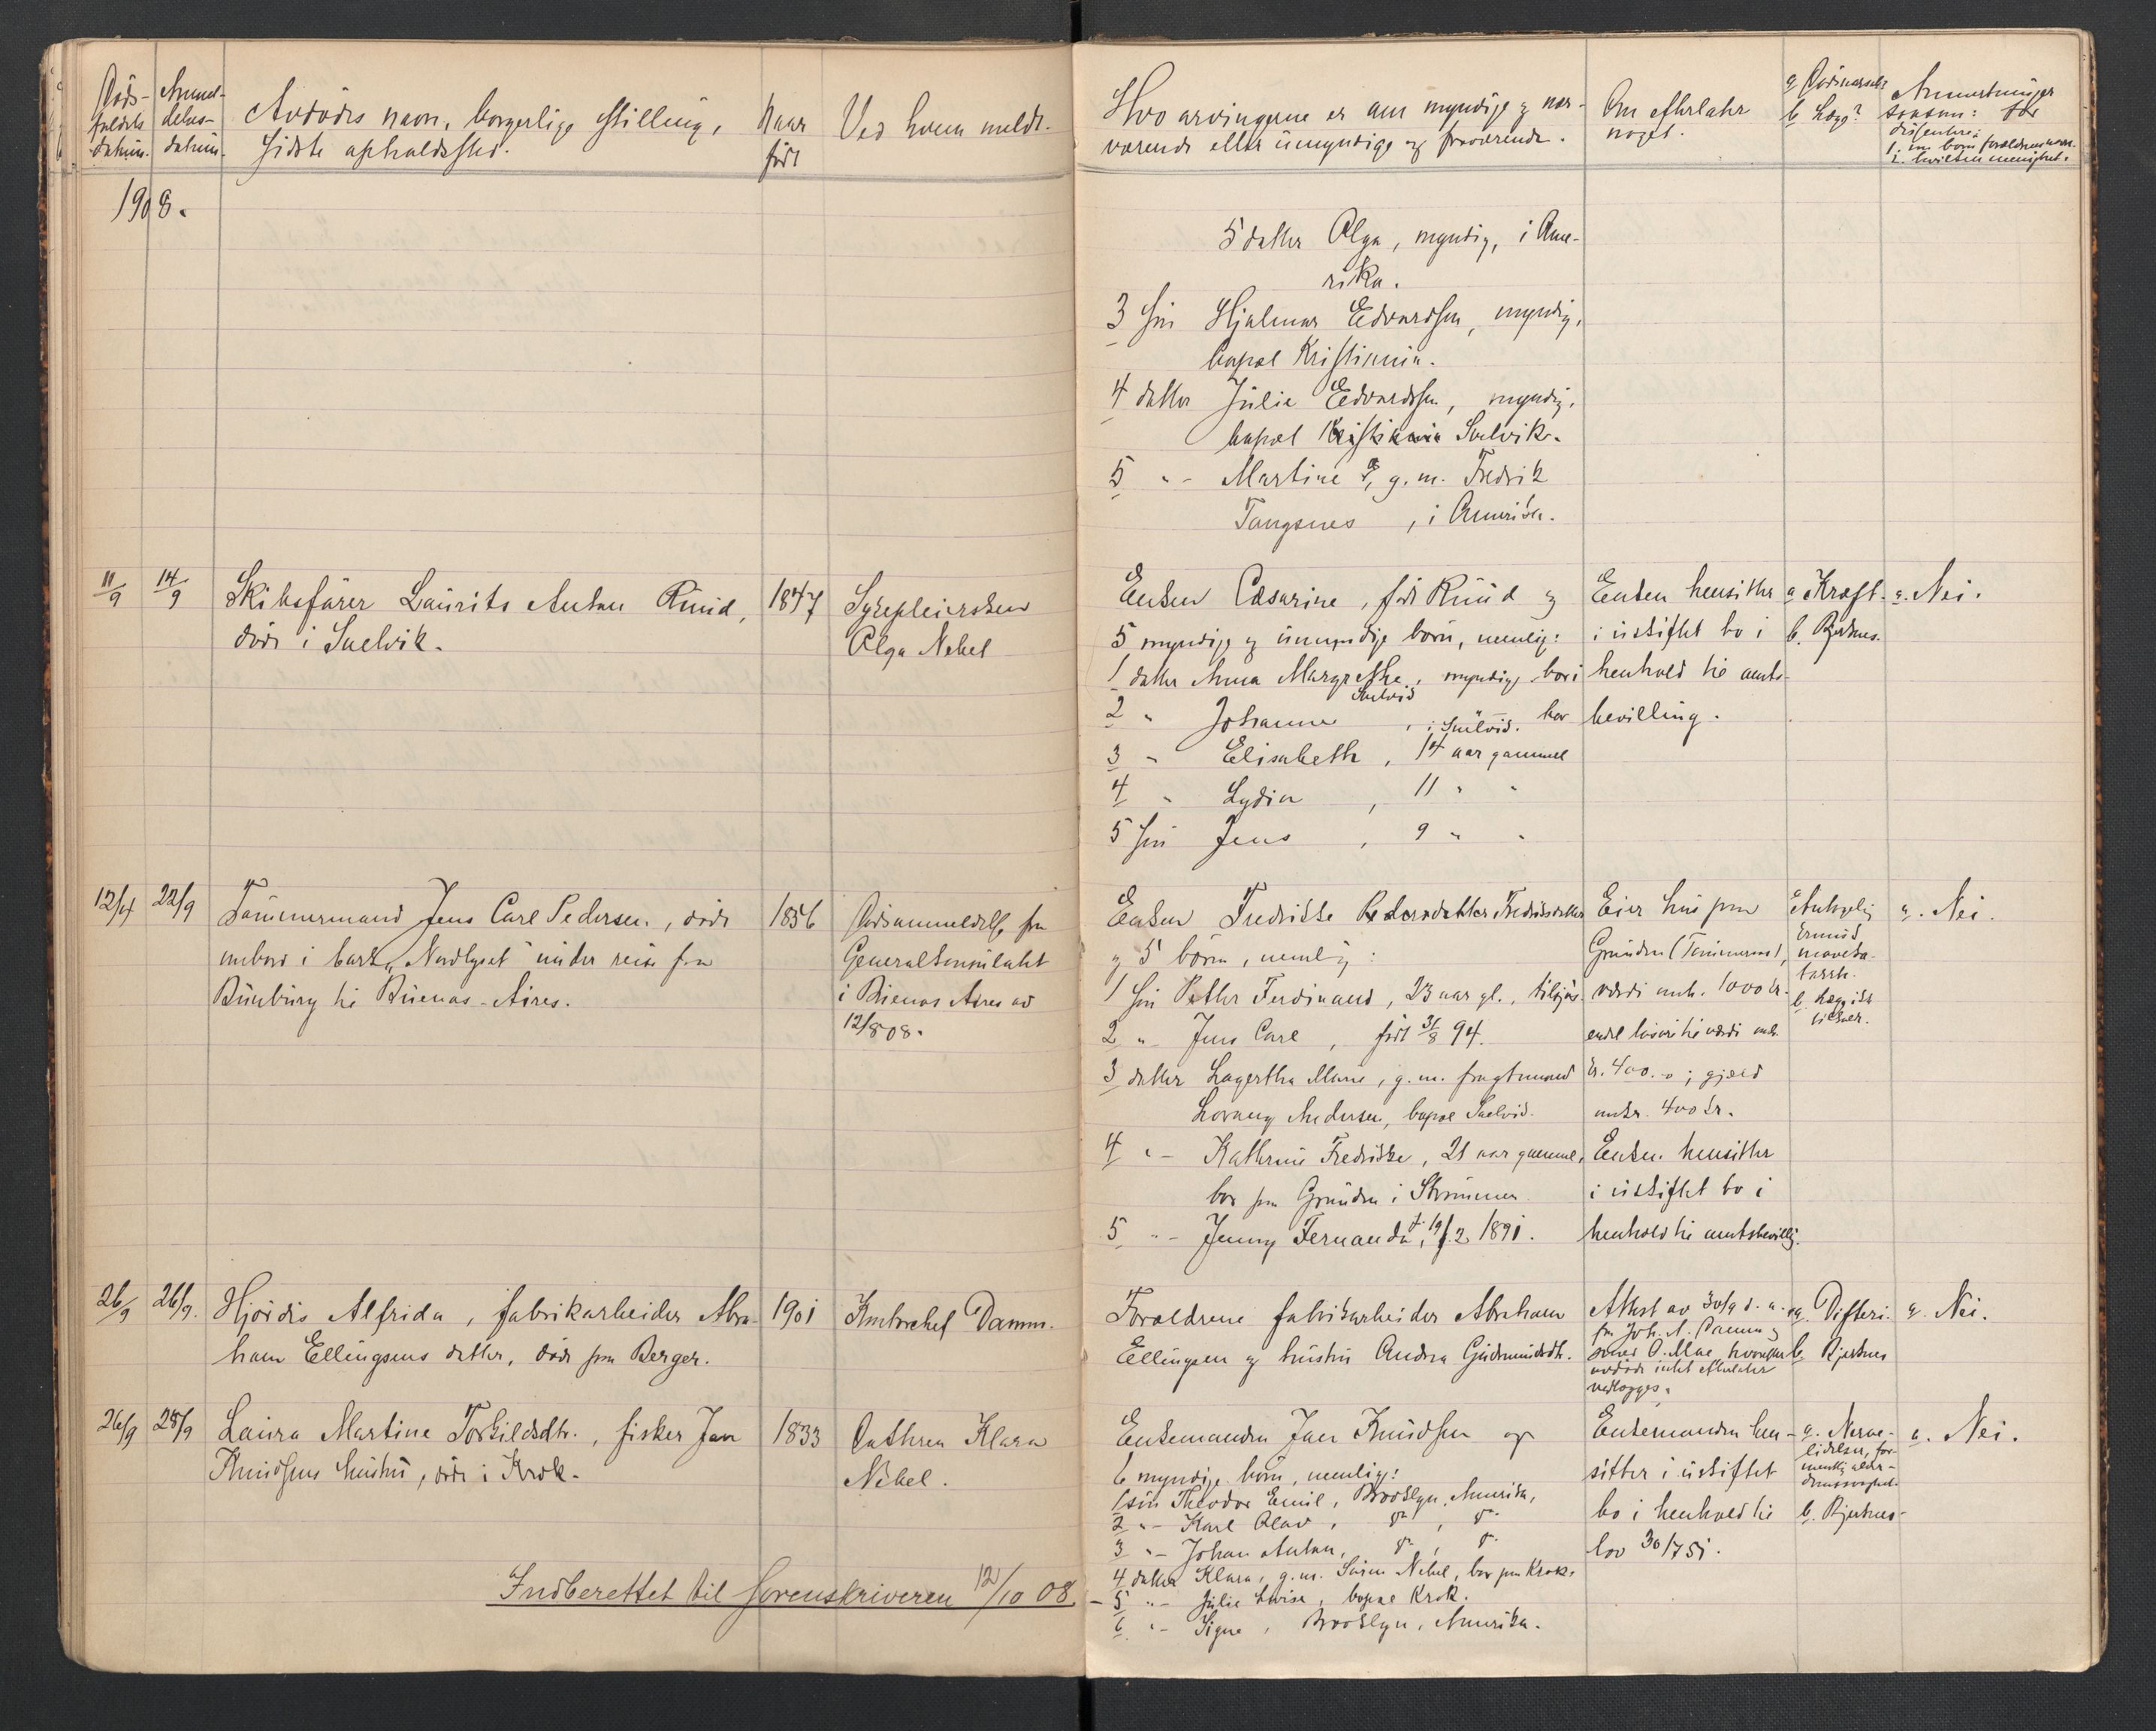 Døds-
faldets
datum.
Anmel-
delses-
datum.
Avdødes navn, borgerlige stilling,
sidste opholdssted.
Naar
født
Ved hvem meldt.
Hvo arvingerne er om myndige og nær-
værende eller umyndige og fraværende.
Om efterlatt
noget.
a Dødsaarsak
b Læge?
Anmerkninger
saasom: for
dissentere:
1908.
5 datter Olga, myndig, i Ame-
rika.
3 søn Hjalmar Edvardsen, myndig,
bopæl Kristiania.
4 datter Julie Edvardsen, myndig,
bopæl Kristiania Svelvik.
5 " - Martine ?, g. m. Fredrik
Tangsnes, i Amerika.
11/9 14/9 Skibsfører Laurits Anton Ruud,
døde i Svelvik.
1847
Sykepleiersken
Olga Nebel
Enken Cæsarine, født Ruud og
5 myndige og umyndige børn, nemlig:
1 datter Anna Margrethe, myndig, bor i
Svelvik
2 " Johanne, i Svelvik. bor
3 " Elisabeth, 14 aar gammel
4 " Lydia, 11 " "
5 søn Jens, 9 " "
Enken hensitter
i uskiftet bo i
henhold til amts-
bevilling.
a Kræft.
b. Bjerknes.
a. Nei.
12/4 22/9 Tømmermand Jens Carl Pedersen, døde
ombord i bark "Nordlyset" under reise fra
Bunbury til Buenos-Aires.
1856
Dødsanmeldelse fra
Generalkonsulatet
i Buenos Aires av
12/8 08.
Enken Fredrikke Pedersdatter Fredriksdatter
og 5 børn, nemlig:
1 søn Petter Ferdinand, 23 aar gl., tilsjøs
2 " - Jens Carl, født 31/8 94.
3 datter Lagertha Marie, g. m. fragtmand
Lorang Andersen, bopæl Svelvik.
4 " - Kathrine Fredrikke, 21 aar gammel,
bor paa Grunden i Strømmen
5 " - Jenny Fernanda, f. 19/2 1891.
Eier hus paa
Grunden (Tømmeraas),
værdi omtr. 1000 kr.
endel løsøre til værdi omtr.
kr. 400.-; gjæld
omtr. 400 kr.
Enken hensitter
i uskiftet bo i
henhold til amtsbevillg.
Antagelig
kronisk
mavekatarrh.
b. Læge ikke
a. Nei.
26/9 26/9. Hjørdis Alfrida, fabrikarbeider Abra-
ham Ellingsens datter, døde paa Berger.
1901
Kmbrehef Damm.
Forældrene fabrikarbeider Abraham
Ellingsen og hustru Andrea Gudmundsdtr.
Attest av 30/9 d. a.
fra Joh. A. Damm og
avdøde intet efterlater
vedlægges.
a. Difteri.
b. Bjerknes
a. Nei.
26/9 28/9 Laura Martine Torkildsdtr., fisker Jan
Knudsens hustru, døde i Krok.
1833
Datteren Klara
Nebel.
Enkemanden Jan Knudsen og
6 myndige børn, nemlig:
1 søn Theodor Emil, Brooklyn, Amerika,
2 " - Karl Olav, do, do
3 " - Johan Anton, do, do
4 datter Klara, g. m. Søren Nebel, bor paa Krok.
5 " - Julie Lovise, bopæl Krok.
6 " - Signe, Brooklyn, Amerika.
Enkemanden hen-
sitter i uskiftet
bo i henhold til
lov 30/7 51.
a. Nerve-
lidelser, for-
mentlig alder-
domssvakhet.
b. Bjerknes
a. Nei.
Indberettet til Sorenskriveren 12/10 08.